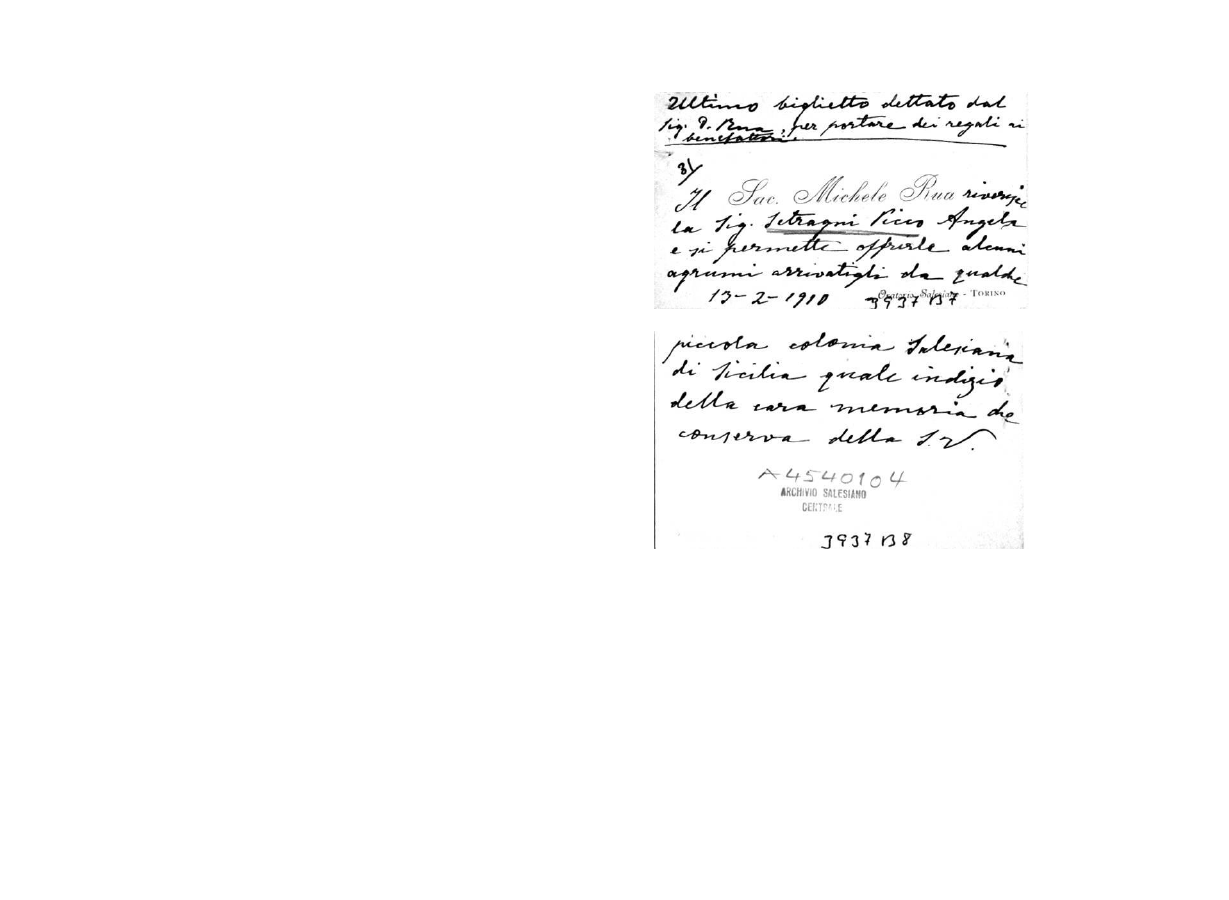 Ultimo biglietto dettato dal
Sig. D. Rua, per portare dei regali ai
benefattori.
8/
Il Sac. Michele Rua riverisce
la Sig. Setragni Picco Angela
e si permette offrirle alcuni
agrumi arrivatigli da qualche
13-2-1910 3937 B7
Oratorio Salesiano - TORINO
piccola colonia Salesiana
di Sicilia quale indizio
della cara memoria che
conserva della S.V.
A4540104
ARCHIVIO SALESIANO
CENTRALE
3937 B8